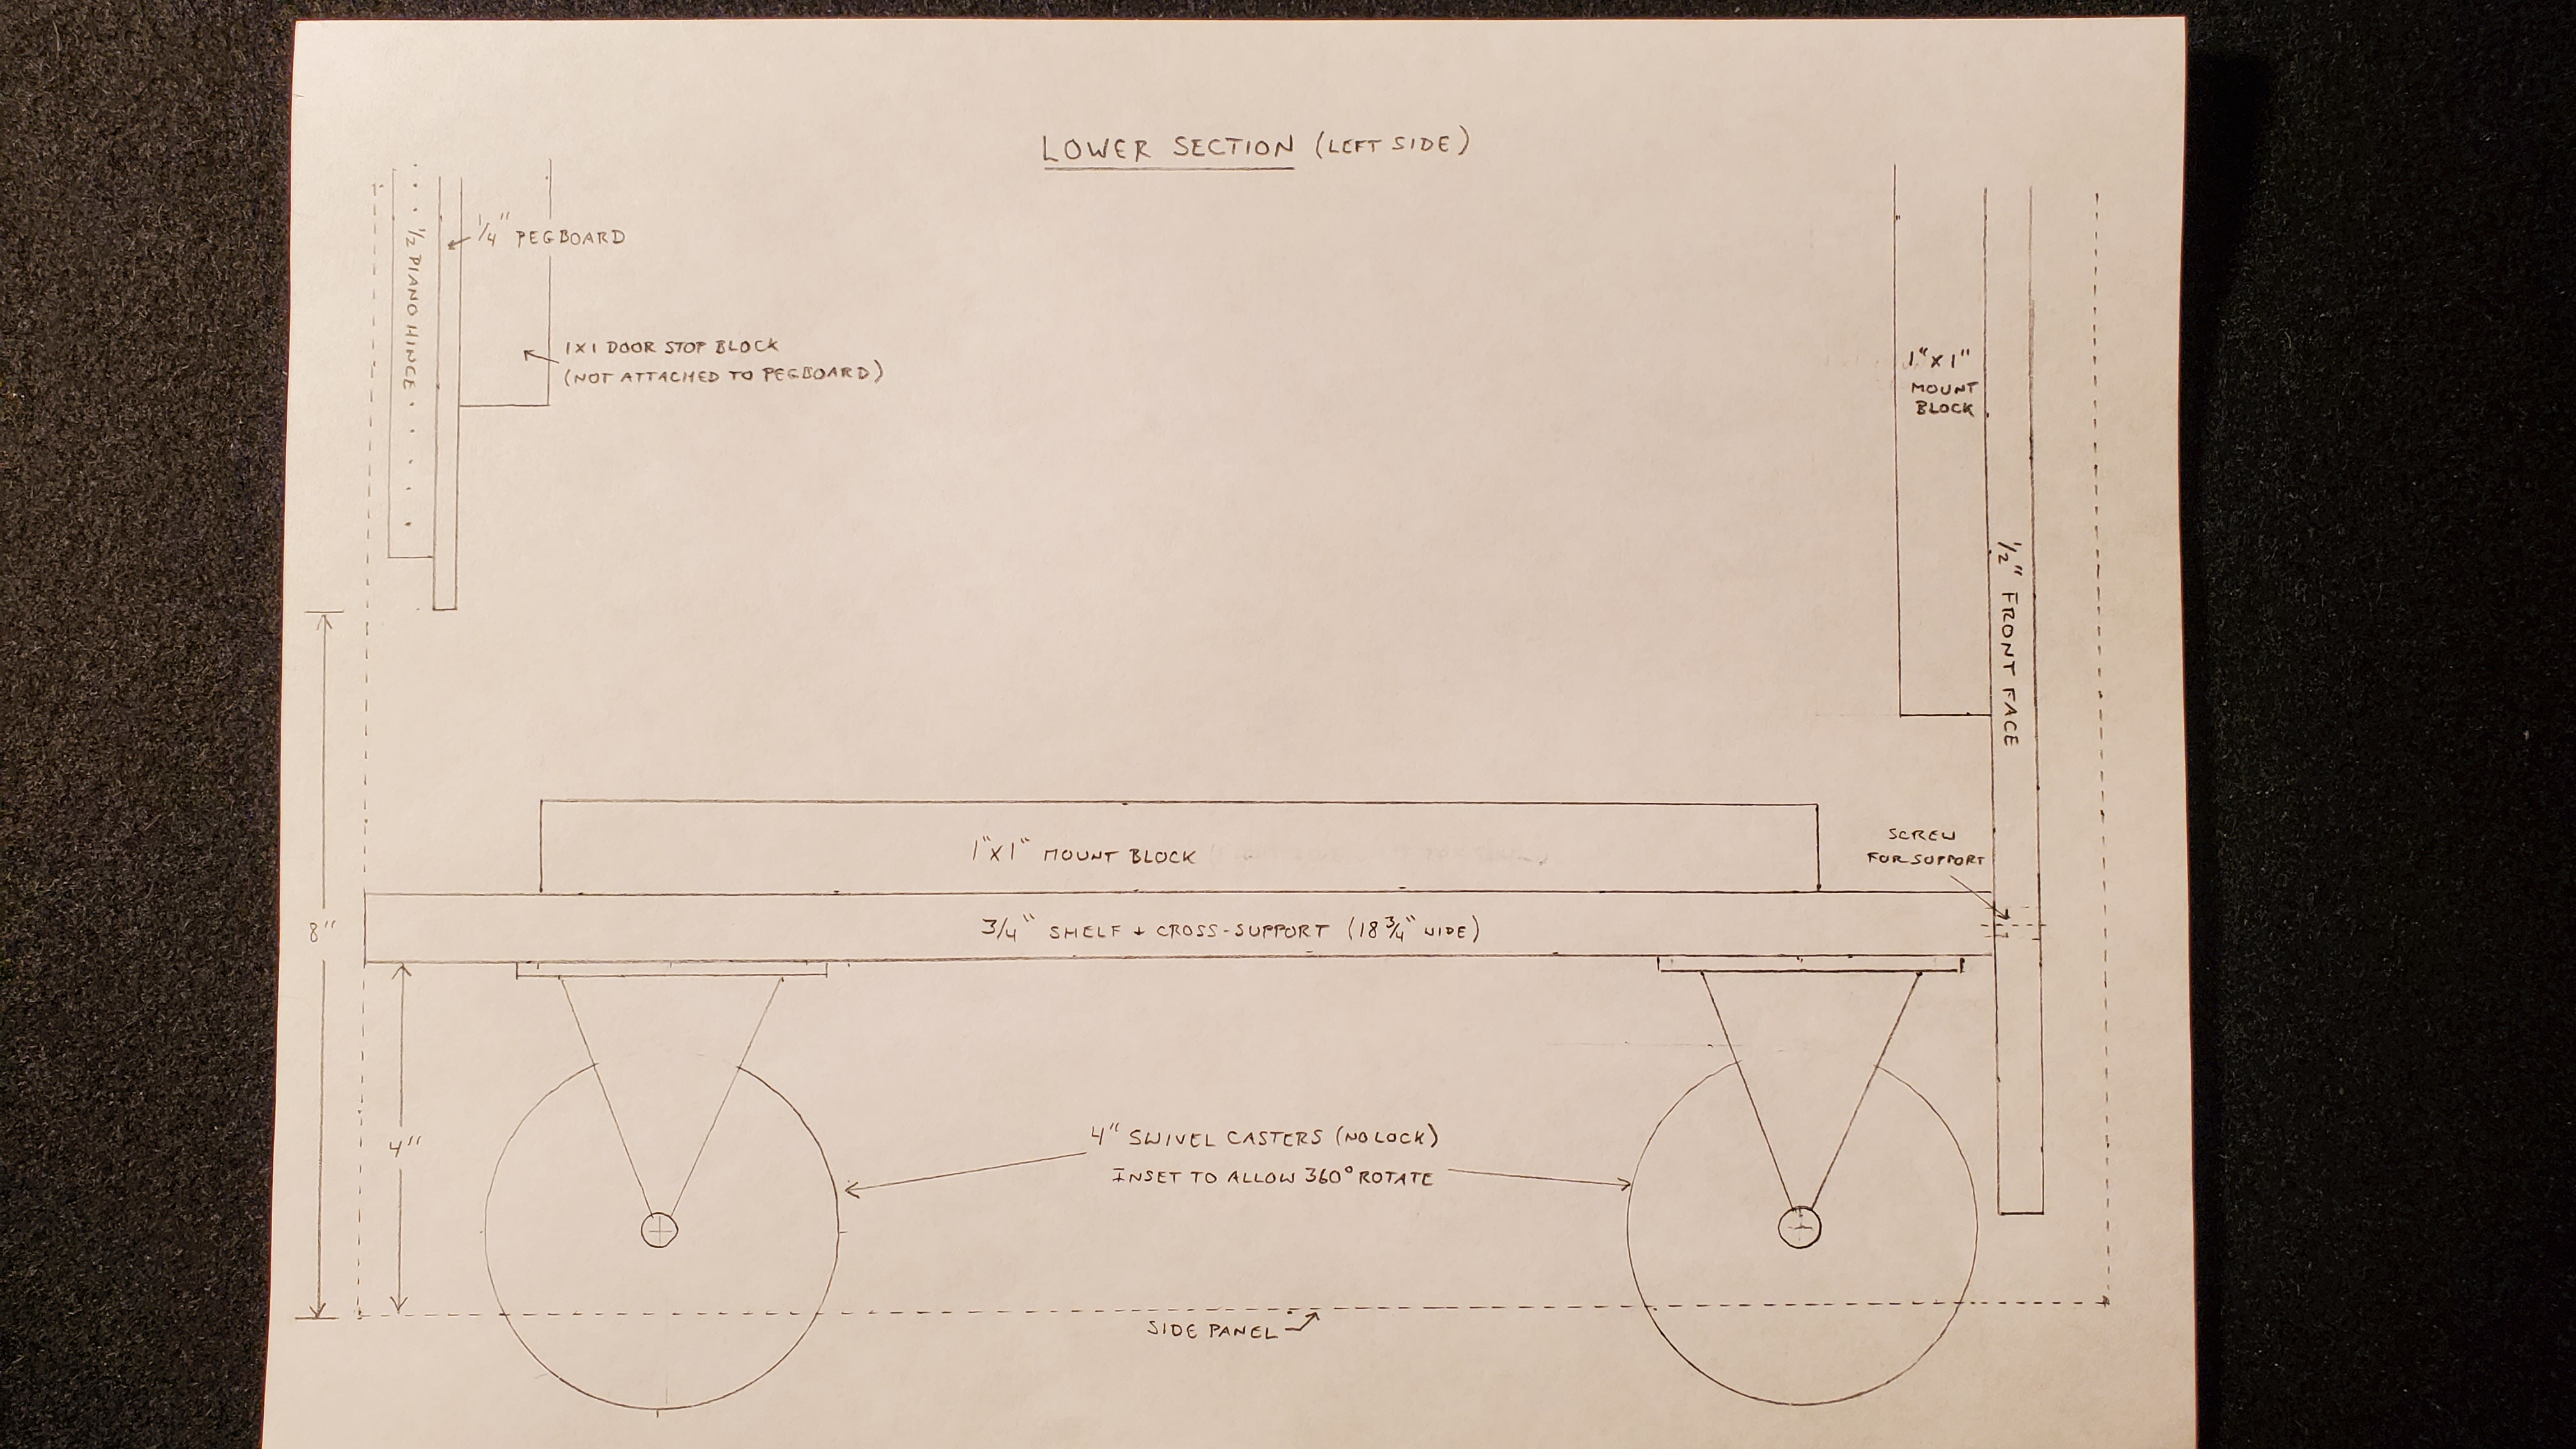 LOWER SECTION (LEFT SIDE)
1/4" PEGBOARD
1/2 PIANO HINGE
1X1 DOOR STOP BLOCK
(NOT ATTACHED TO PEGBOARD)
1"X1"
MOUNT
BLOCK
1/2" FRONT FACE
1"X1" MOUNT BLOCK
SCREW
FOR SUPPORT
3/4" SHELF + CROSS-SUPPORT (18 3/4" WIDE)
8"
4"
4" SWIVEL CASTERS (NO LOCK)
INSET TO ALLOW 360° ROTATE
SIDE PANEL